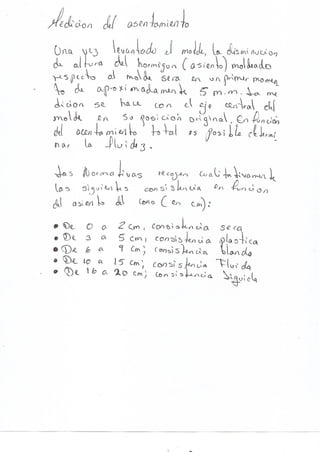 Medicion del asentamiento
Una vez levantado el molde, la disminucion
de altura del hormigon (asiento) moldeado
respecto al molde sera en un primer momen
to de aproximadamente 5 m.m. La me
dicion se hace con el eje central del
molde en su posicion original. En funcion
del acentamiento total es posible determi
nar la fluidez.
Las Normativas recojen cualitativamente
las siguientes consistencia en funcion
del asiento del cono (en cm):
• De 0 a 2 cm, consistencia seca
• De 3 a 5 cm, consistencia plastica
• De 6 a 9 cm; consistencia blanda
• De 10 a 15 cm; consistencia Fluida
• De 16 a 20 cm; consistencia liquida